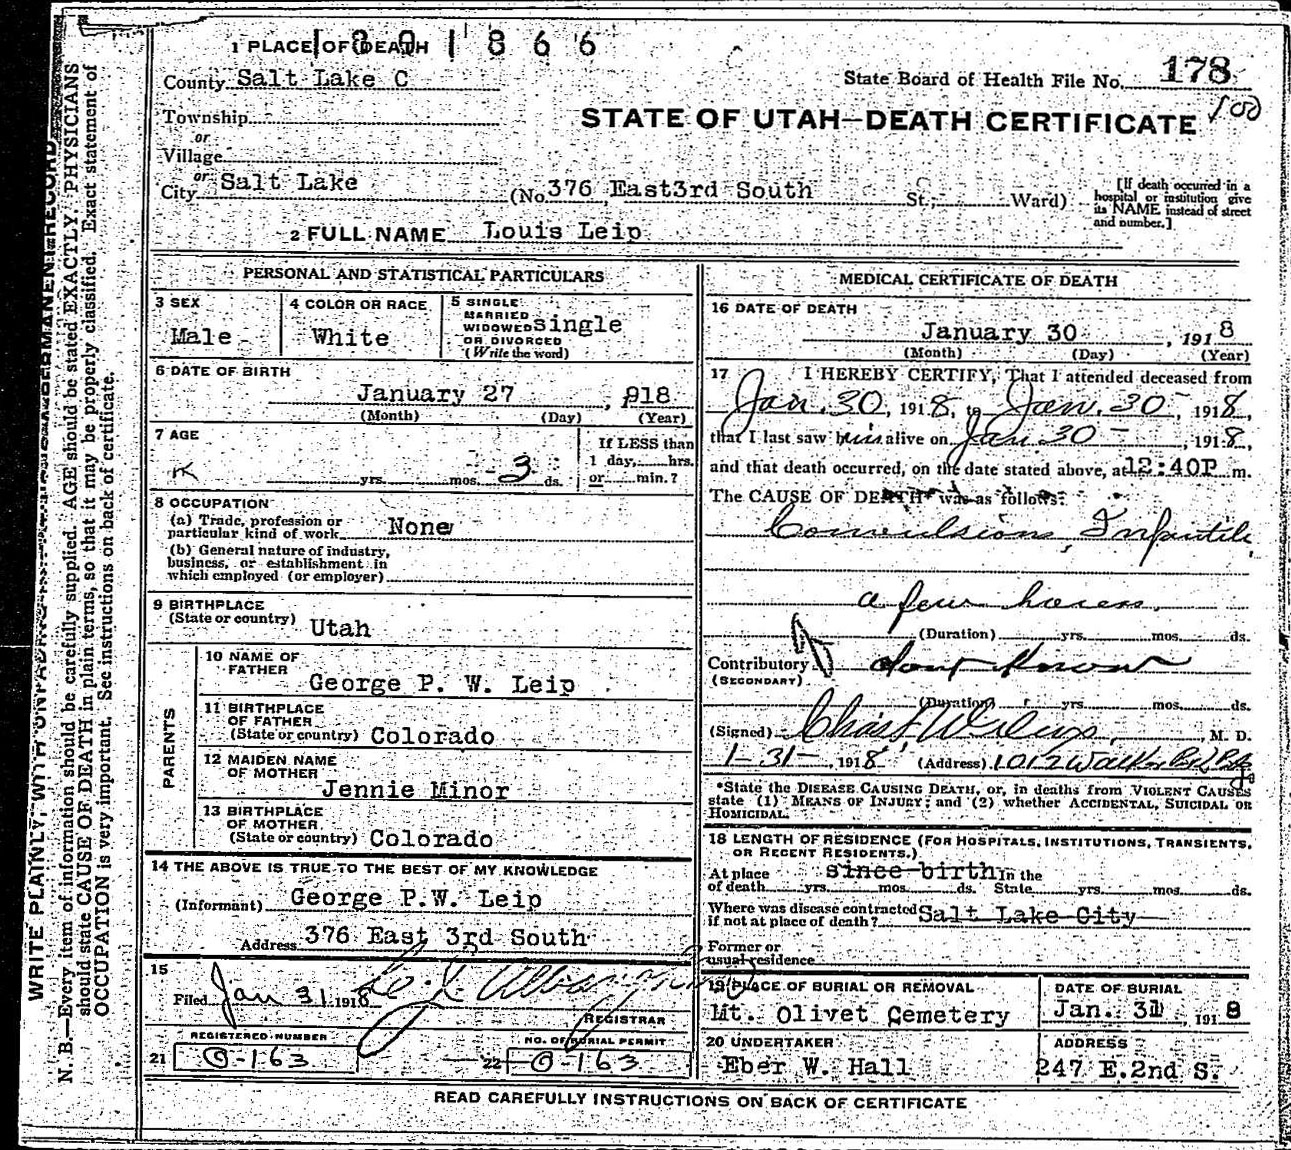 1 PLACE OF DEATH 1801866
County Salt Lake C
State Board of Health File No. 178
100
Township
or
Village
or
City Salt Lake (No. 376 East3rd South St.; Ward)
[If death occurred in a hospital or institution give its NAME instead of street and number.]
STATE OF UTAH—DEATH CERTIFICATE
2 FULL NAME Louis Leip
PERSONAL AND STATISTICAL PARTICULARS
3 SEX
Male
4 COLOR OR RACE
White
5 SINGLE
MARRIED
WIDOWED single
OR DIVORCED
(Write the word)
6 DATE OF BIRTH
January 27, 918
(Month) (Day) (Year)
7 AGE
yrs. mos. 3 ds.
If LESS than
1 day, hrs.
or min.?
8 OCCUPATION
(a) Trade, profession or
particular kind of work None
(b) General nature of industry,
business, or establishment in
which employed (or employer)
9 BIRTHPLACE
(State or country) Utah
PARENTS
10 NAME OF
FATHER
George P. W. Leip
11 BIRTHPLACE
OF FATHER
(State or country) Colorado
12 MAIDEN NAME
OF MOTHER
Jennie Minor
13 BIRTHPLACE
OF MOTHER
(State or country) Colorado
14 THE ABOVE IS TRUE TO THE BEST OF MY KNOWLEDGE
(Informant) George P.W. Leip
Address 376 East 3rd South
15
Filed Jan 31 1918
REGISTRAR
REGISTERED NUMBER
21 O-163
NO. OF BURIAL PERMIT
22 O-163
MEDICAL CERTIFICATE OF DEATH
16 DATE OF DEATH
January 30, 1918
(Month) (Day) (Year)
17 I HEREBY CERTIFY, That I attended deceased from
Jan. 30, 1918, to Jan. 30, 1918,
that I last saw him alive on Jan 30, 1918,
and that death occurred, on the date stated above, at 12:40P m.
The CAUSE OF DEATH* was as follows:
Convulsions, Infantile,
a few hours.
(Duration) yrs. mos. ds.
Contributory dont know
(SECONDARY)
(Duration) yrs. mos. ds.
(Signed) Chas , M. D.
1-31-, 1918 (Address) 1012 Walker Bk Bldg
*State the DISEASE CAUSING DEATH, or, in deaths from VIOLENT CAUSES
state (1) MEANS OF INJURY; and (2) whether ACCIDENTAL, SUICIDAL OR
HOMICIDAL.
18 LENGTH OF RESIDENCE (FOR HOSPITALS, INSTITUTIONS, TRANSIENTS,
OR RECENT RESIDENTS.)
At place since birth In the
of death yrs. mos. ds. State yrs. mos. ds.
Where was disease contracted Salt Lake City
if not at place of death?
Former or
usual residence
19 PLACE OF BURIAL OR REMOVAL
Mt. Olivet Cemetery
DATE OF BURIAL
Jan. 31, 1918
20 UNDERTAKER
Eber W. Hall
ADDRESS
247 E.2nd S.
READ CAREFULLY INSTRUCTIONS ON BACK OF CERTIFICATE
WRITE PLAINLY, WITH UNFADING PERMANENT RECORD
N. B.—Every item of information should be carefully supplied. AGE should be stated EXACTLY. PHYSICIANS
should state CAUSE OF DEATH in plain terms, so that it may be properly classified. Exact statement of
OCCUPATION is very important. See instructions on back of certificate.